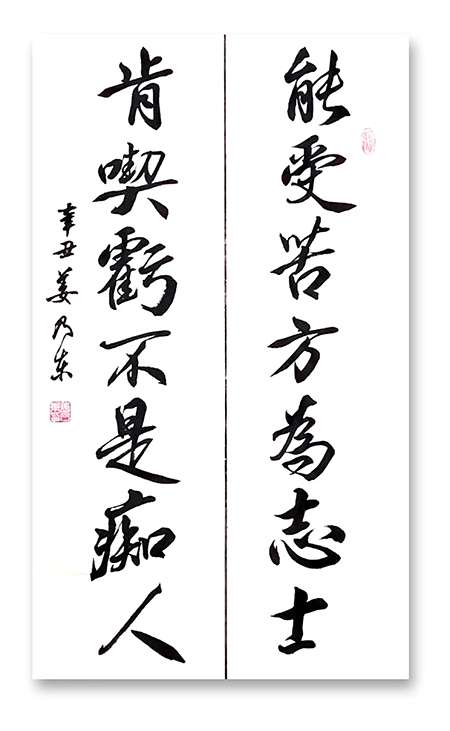 能受苦方為志士
肯喫虧不是痴人
辛丑姜乃東